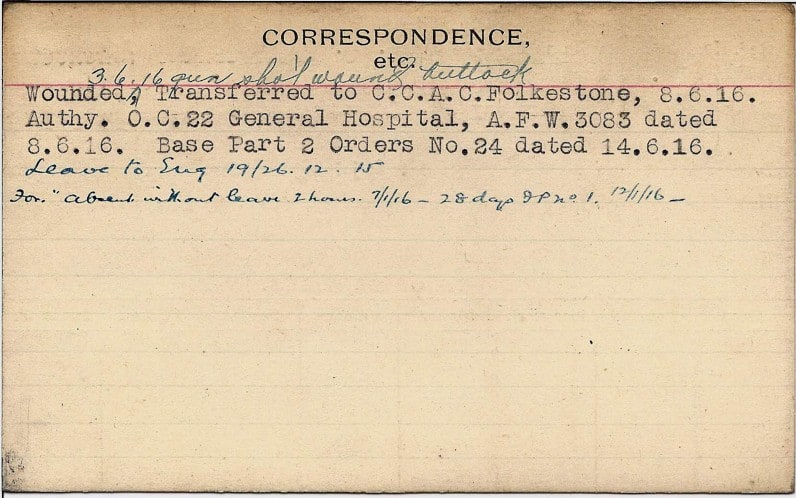 CORRESPONDENCE,
etc.
3.6.16 gun shot wound buttock
Wounded, Transferred to C.C.A.C.Folkestone, 8.6.16.
Authy. O.C.22 General Hospital, A.F.W.3083 dated
8.6.16. Base Part 2 Orders No.24 dated 14.6.16.
Leave to Eng 19/26.12.15
For "absent without leave 2 hours. 7/1/16 - 28 days FP no 1. 12/1/16 -